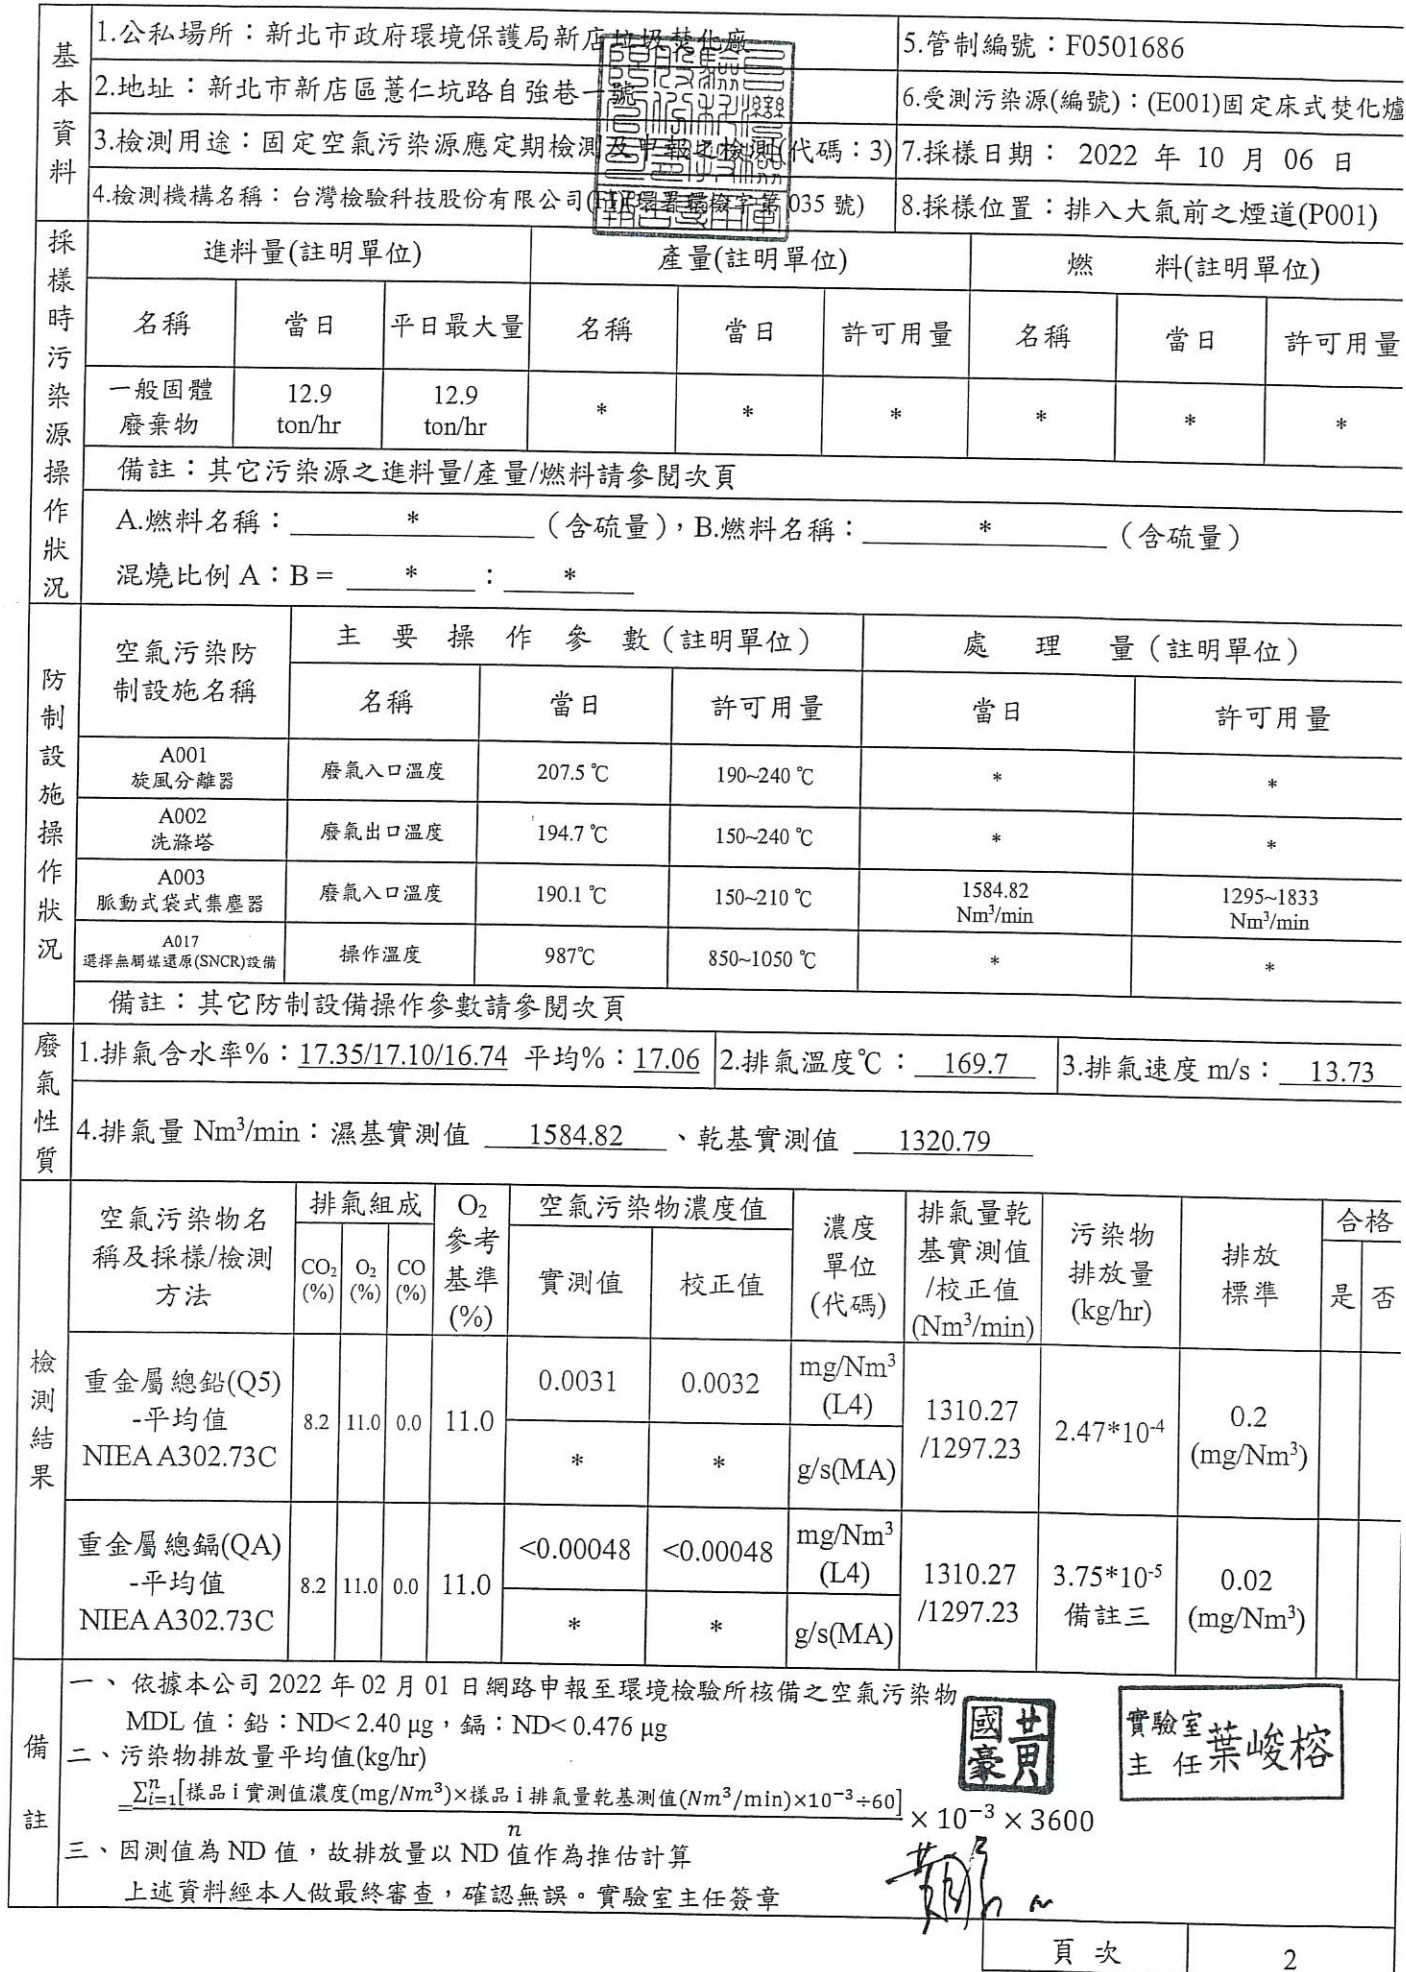 基本資料
1.公私場所：新北市政府環境保護局新店垃圾焚化廠
5.管制編號：F0501686
2.地址：新北市新店區薏仁坑路自強巷一號
6.受測污染源(編號)：(E001)固定床式焚化爐
3.檢測用途：固定空氣污染源應定期檢測及申報之檢測(代碼：3)
7.採樣日期： 2022 年 10 月 06 日
4.檢測機構名稱：台灣檢驗科技股份有限公司 035 號)
8.採樣位置：排入大氣前之煙道(P001)
採樣時污染源操作狀況
進料量(註明單位) 產量(註明單位) 燃 料(註明單位)
名稱 當日 平日最大量 名稱 當日 許可用量 名稱 當日 許可用量
一般固體廢棄物 12.9 ton/hr 12.9 ton/hr * * * * * *
備註：其它污染源之進料量/產量/燃料請參閱次頁
A.燃料名稱： * （含硫量），B.燃料名稱： * （含硫量）
混燒比例 A：B = * ： *
防制設施操作狀況
空氣污染防制設施名稱 主 要 操 作 參 數（註明單位） 處 理 量（註明單位）
名稱 當日 許可用量 當日 許可用量
A001 旋風分離器 廢氣入口溫度 207.5 ℃ 190~240 ℃ * *
A002 洗滌塔 廢氣出口溫度 194.7 ℃ 150~240 ℃ * *
A003 脈動式袋式集塵器 廢氣入口溫度 190.1 ℃ 150~210 ℃ 1584.82 Nm³/min 1295~1833 Nm³/min
A017 選擇無觸媒還原(SNCR)設備 操作溫度 987℃ 850~1050 ℃ * *
備註：其它防制設備操作參數請參閱次頁
廢氣性質
1.排氣含水率%：17.35/17.10/16.74 平均%：17.06 2.排氣溫度℃： 169.7 3.排氣速度 m/s： 13.73
4.排氣量 Nm³/min：濕基實測值 1584.82 、乾基實測值 1320.79
檢測結果
空氣污染物名稱及採樣/檢測方法 排氣組成 O₂參考基準(%) 空氣污染物濃度值 濃度單位(代碼) 排氣量乾基實測值/校正值(Nm³/min) 污染物排放量(kg/hr) 排放標準 合格
CO₂(%) O₂(%) CO(%) 實測值 校正值 是 否
重金屬總鉛(Q5)-平均值 NIEA A302.73C 8.2 11.0 0.0 11.0 0.0031 0.0032 mg/Nm³(L4) 1310.27/1297.23 2.47*10⁻⁴ 0.2 (mg/Nm³)
* * g/s(MA)
重金屬總鎘(QA)-平均值 NIEA A302.73C 8.2 11.0 0.0 11.0 <0.00048 <0.00048 mg/Nm³(L4) 1310.27/1297.23 3.75*10⁻⁵ 備註三 0.02 (mg/Nm³)
* * g/s(MA)
備註
一、 依據本公司 2022 年 02 月 01 日網路申報至環境檢驗所核備之空氣污染物
MDL 值：鉛：ND< 2.40 μg，鎘：ND< 0.476 μg
二、污染物排放量平均值(kg/hr)
=∑ⁿᵢ₌₁[樣品 i 實測值濃度(mg/Nm³)×樣品 i 排氣量乾基測值(Nm³/min)×10⁻³÷60]
n
× 10⁻³ × 3600
三、因測值為 ND 值，故排放量以 ND 值作為推估計算
上述資料經本人做最終審查，確認無誤。實驗室主任簽章
黃國豪
實驗室主任 葉峻榕
頁次 2